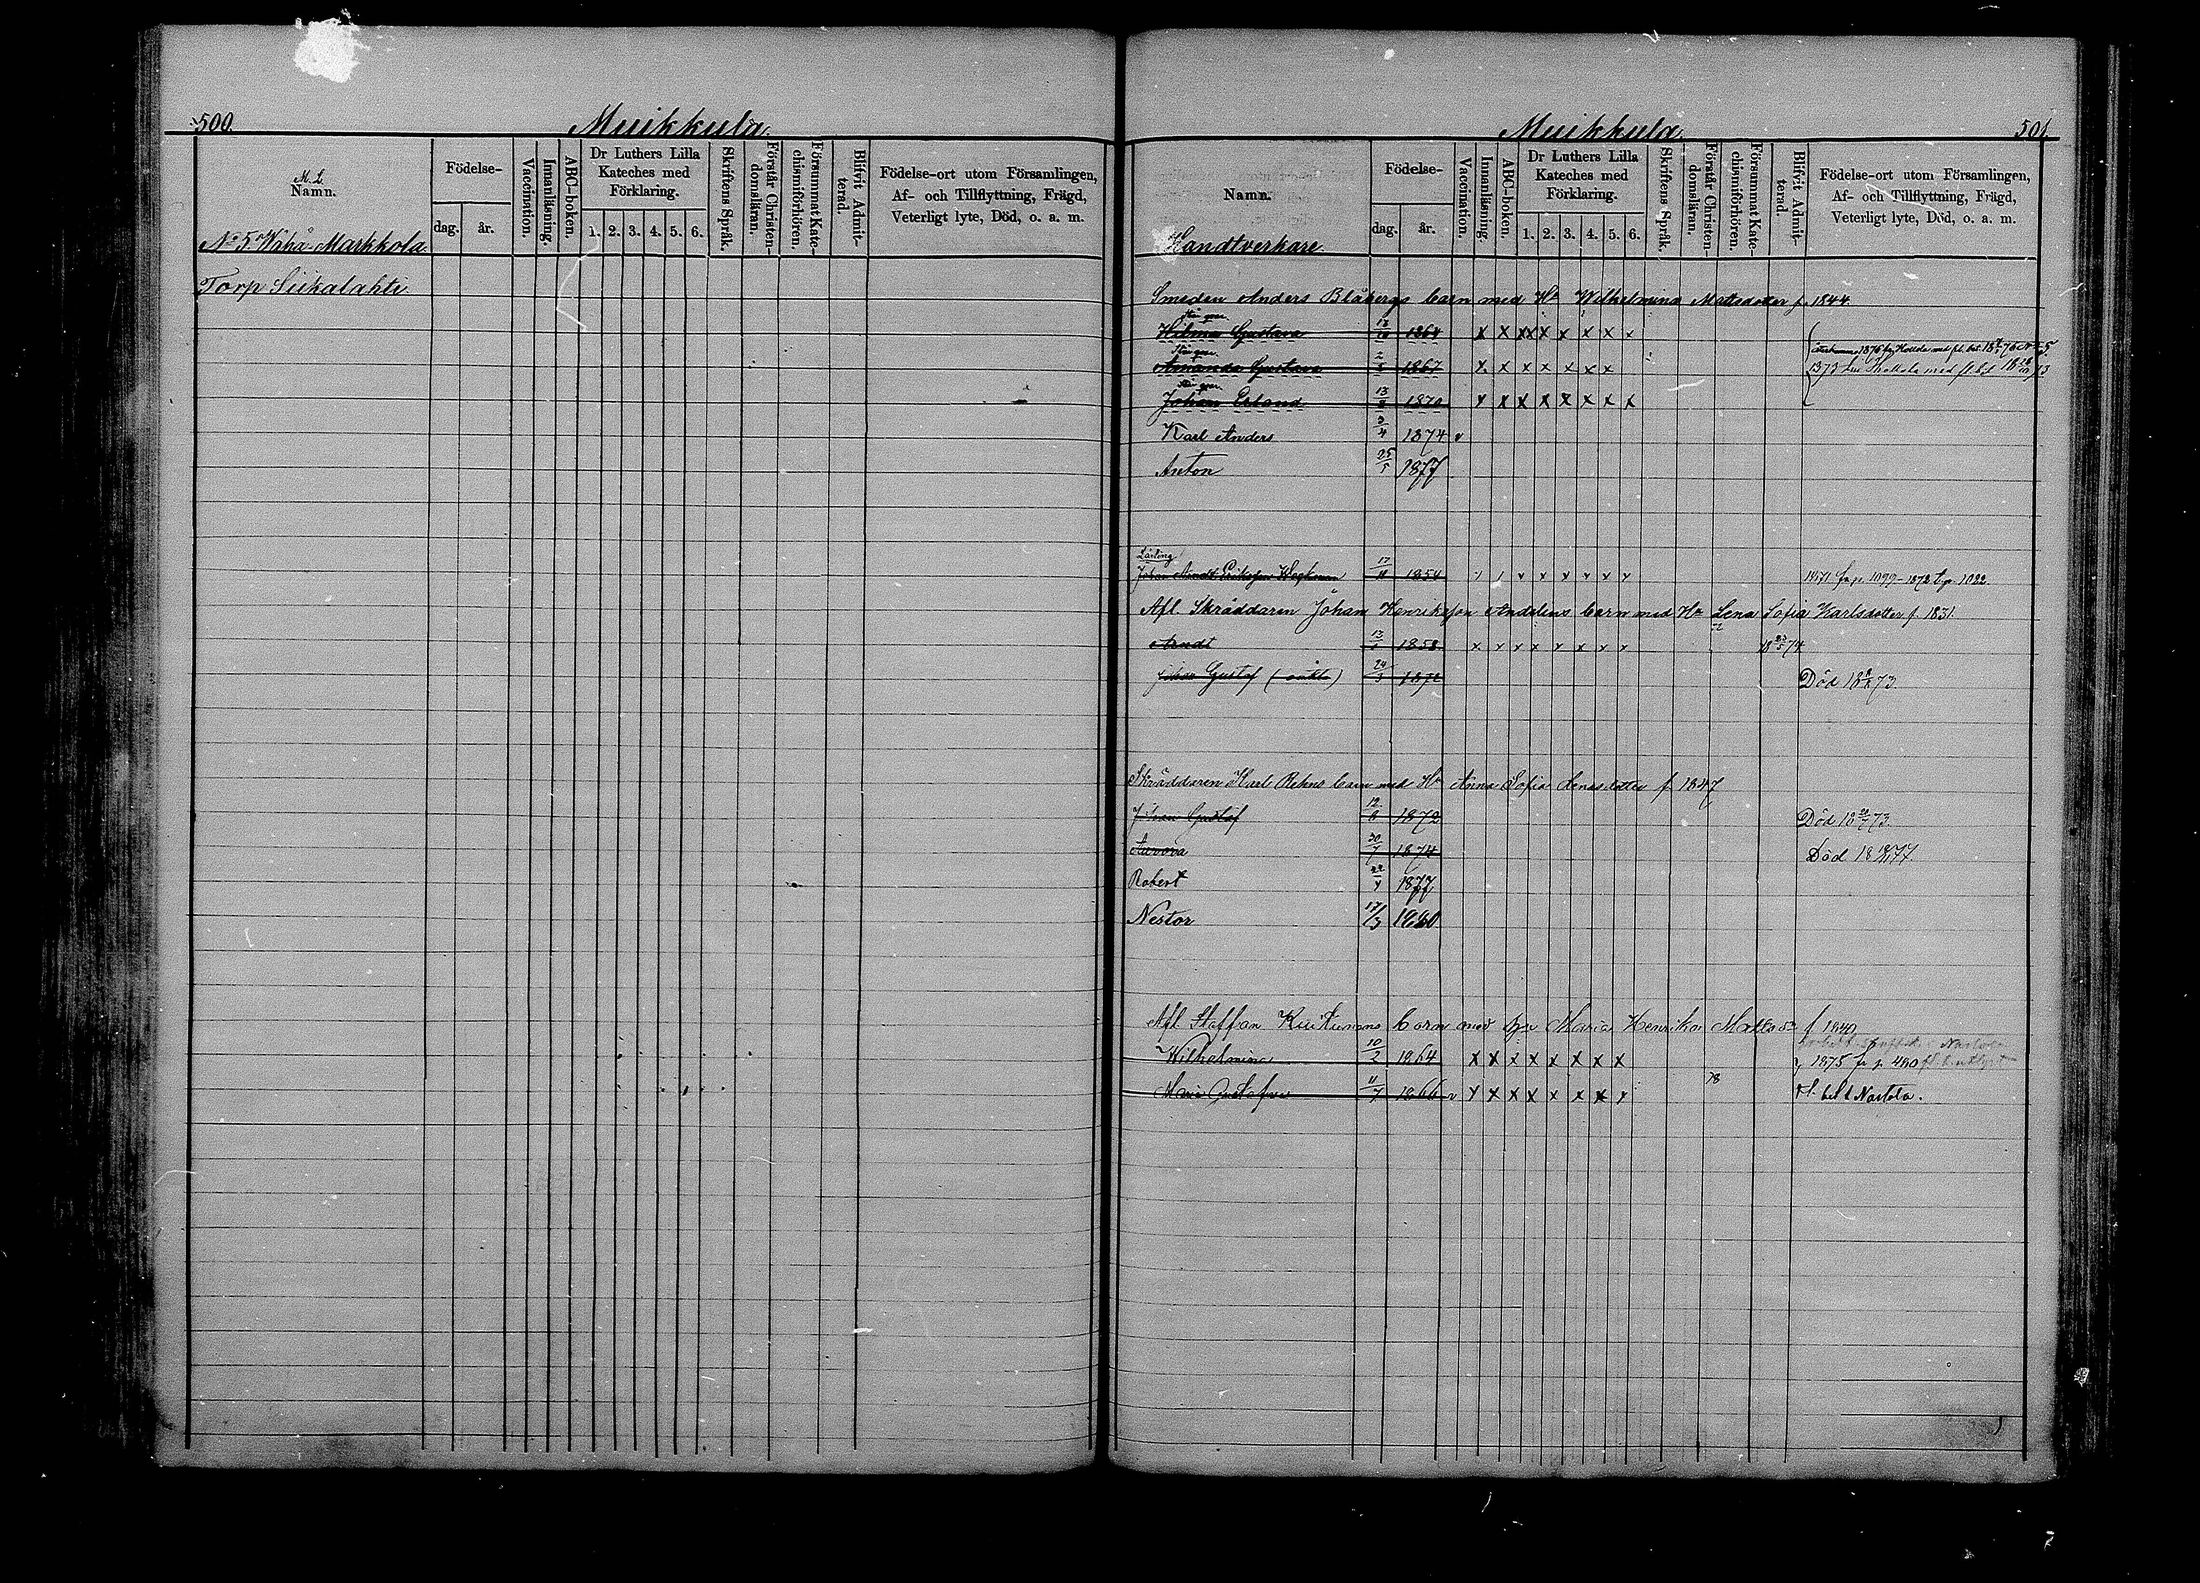 500.
Muikkula.
M. L.
Namn.
Födelse-
dag.
år.
Vaccination.
Innanläsning.
ABC-boken.
Dr Luthers Lilla
Kateches med
Förklaring.
1. 2. 3. 4. 5. 6.
Skriftens Språk.
Förstår Christen-
domsläran.
Försummat Kate-
chismiförhören.
Blifvit Admit-
terad.
Födelse-ort utom Församlingen,
Af- och Tillflyttning, Frägd,
Veterligt lyte, Död, o. a. m.
No 5. Wähä-Markkola.
Torp Siikalahti
Muikkula
501.
Namn.
Födelse-
dag.
år.
Vaccination.
Innanläsning.
ABC-boken.
Dr Luthers Lilla
Kateches med
Förklaring.
1. 2. 3. 4. 5. 6.
Skriftens Språk.
Förstår Christen-
domsläran.
Försummat Kate-
chismiförhören.
Blifvit Admit-
terad.
Födelse-ort utom Församlingen,
Af- och Tillflyttning, Frägd,
Veterligt lyte, Död, o. a. m.
Handtverkare.
Smeden Anders Blåbergs barn med Hu Wilhelmina Mattsdotter f. 1844.
Hilma Gustava 1864 x x x x x x x x
Amanda Gustava 1867 x x x x x x x
Johan Erland 13 1870 x x x x x x x x
Karl Anders 3/4 1874 v
Anton 25/5 1877
Lärling
Johan 17 1854 1871 fr p. 1099 - 1872 t. p. 1022
Afl. Skräddaren Johan Henriksson Andelins barn med Hu Lena Sofia Karlsdotter f. 1831.
Arndt 13 1858 x x x x x x x x 18 74
Johan Gustaf 24/3 1872 Död 18 73.
Skräddaren Karl Rehns barn med Hu Anna Sofia f. 1847
Johan Gustaf 12/6 1872 Död 18 73.
Aurora 30/7 1874 Död 18 77.
Robert 22 1877
Nestor 17/3 1880
Afl. Staffan barn med Maria Henrika f. 1840
Wilhelmina 10/2 1864 x x x x x x x x 1875 fr p. 480
Maria Gustafva 11/7 1866 v x x x x x x x x 78 fl. bet t Nastola.